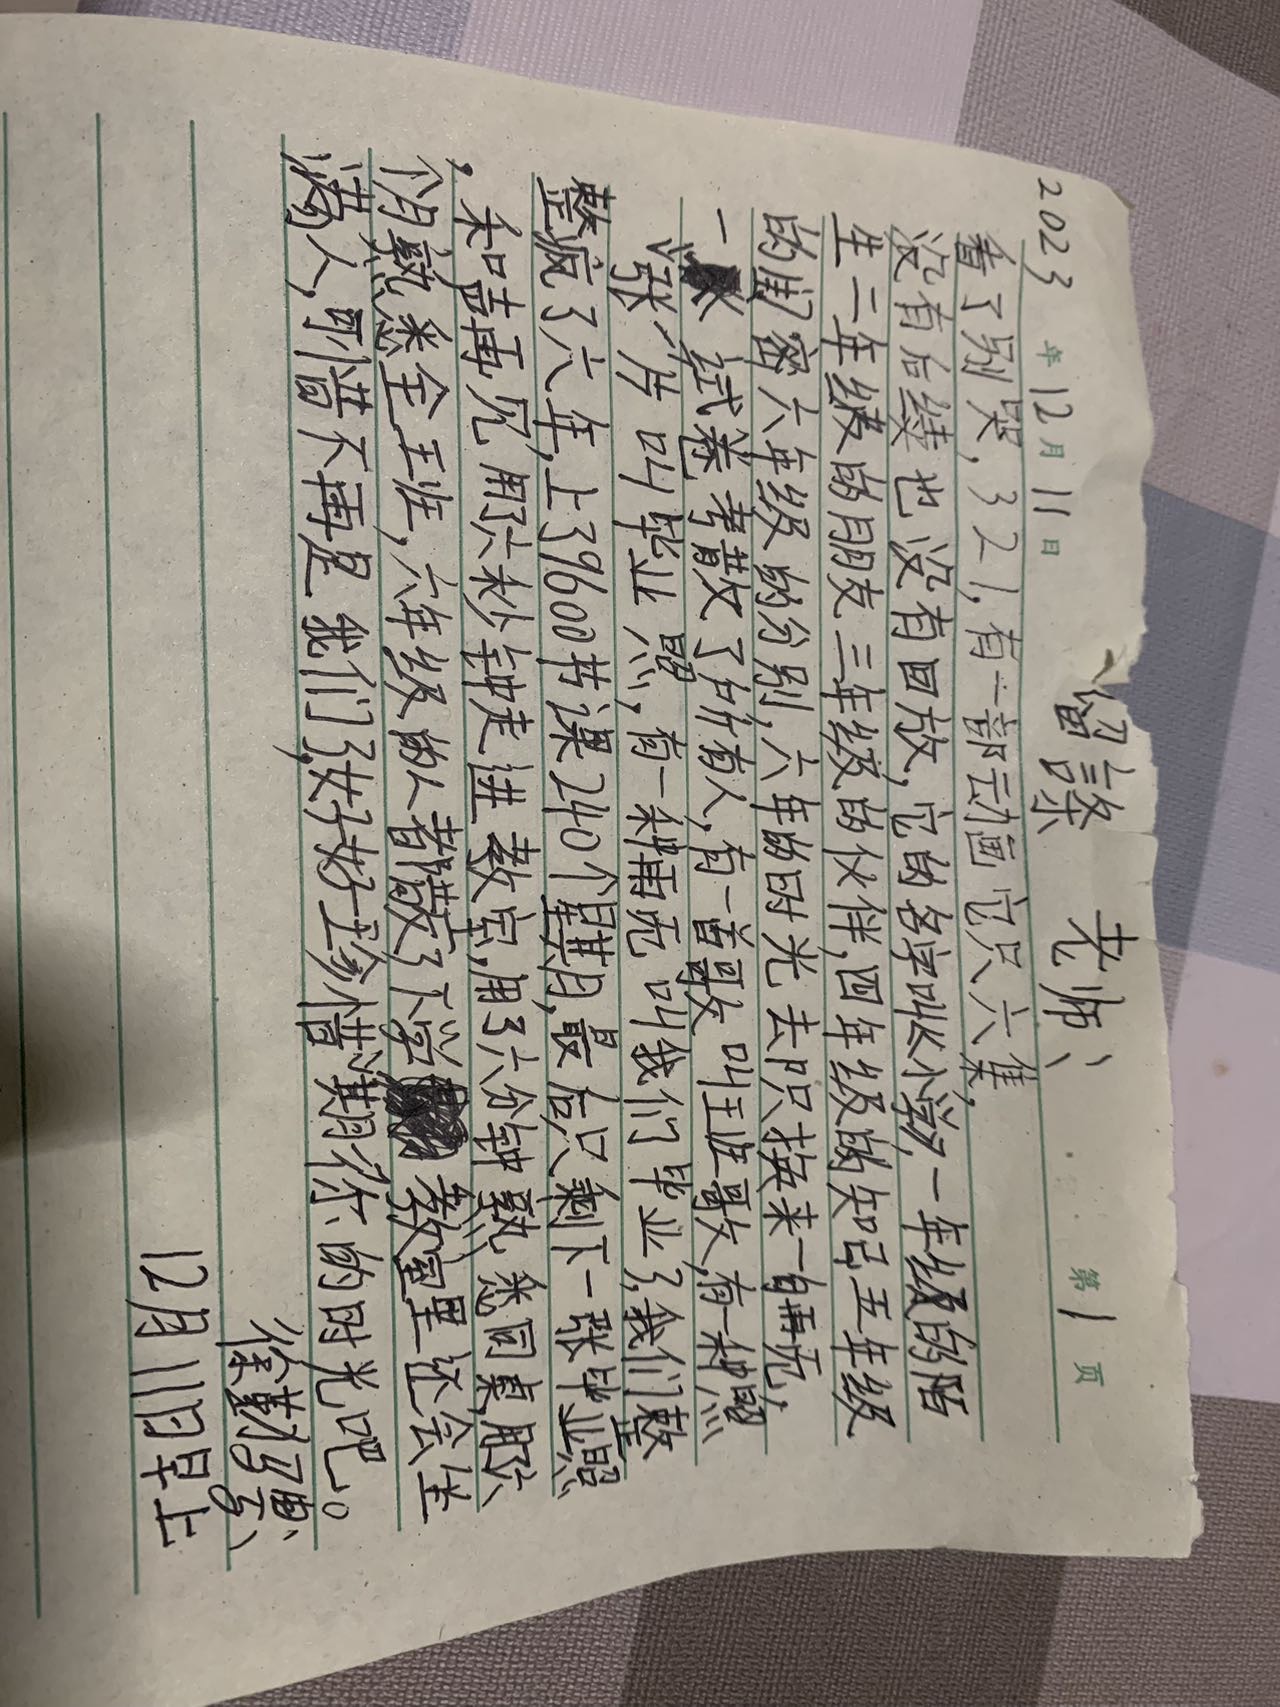 2023年12月11日 第1页
老师、
看了别哭,321,有一部动画它只六集,
没有后续也没有回放,它的名字叫小学,一年级的陌
生二年级的朋友三年级的伙伴,四年级的知己五年级
的闺密六年级的分别,六年的时光去只换来一句再见,
一 试卷考散了所有人,有一首歌叫王班歌,有一种照
张片叫毕业照,有一种再见叫我们毕业了,我们整
整疯了六年,上39600节课240个星期,最后只剩下一张毕业照
,和口再见用六秒钟走进教室,用了六分钟熟悉同桌,用六
个月熟悉全王班,六年级的人都散了下学 教室里还会坐
满人,可惜不再是我们了,好好珍惜 你的时光吧。
徐
12月11日早上